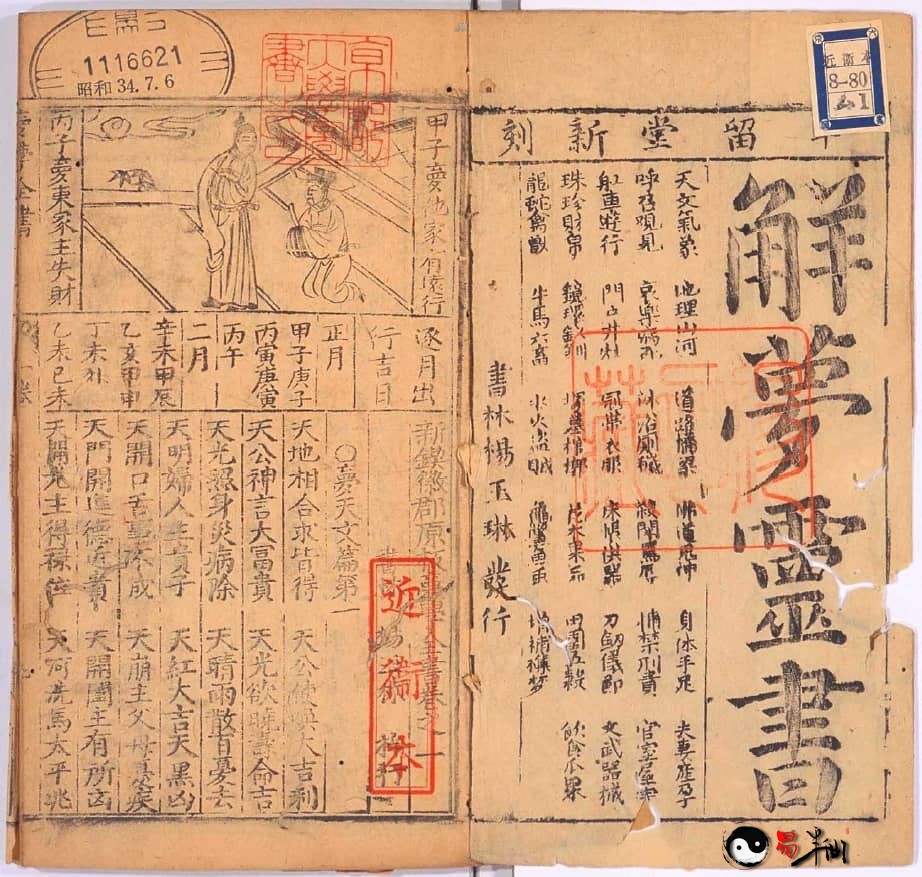 留堂新刻
解夢靈書
天文氣象 地理山河 道路橋梁 佛道鬼神 身体手足 夫妻產孕
呼召觀見 哀樂病死 沐浴廁穢 捕禁刑責
舡車遊行 門户井灶 冠帶衣服 刀劍儀節 文武器械
珠珍財帛 田園五穀 飲食瓜果
龍蛇禽獸 牛馬六畜 水火盜賊
書林楊玉琳發行
近衞本
8-80
厶1
1116621
昭和34.7.6
甲子夢他家有遠行
丙子夢東家主失財
逐月出
行吉日
正月
甲子庚子
丙寅庚寅
丙午
二月
辛未甲辰
乙亥甲申
丁未
乙未己未
新鋟徽郡原板夢學全書卷之一
〇夢天文篇第一
天地相合求皆得 天公使喚大吉利
天公神言大冨貴 天光欲曙壽命吉
天光照身災病除 天晴雨散百憂去
天明婦人生貴子 天紅大吉天黑凶
天開口舌事不成 天崩主父母憂疾
天門開進德近貴 天開圍主有所
天開光主得祿位 天河洗馬太平兆
近衞本
易